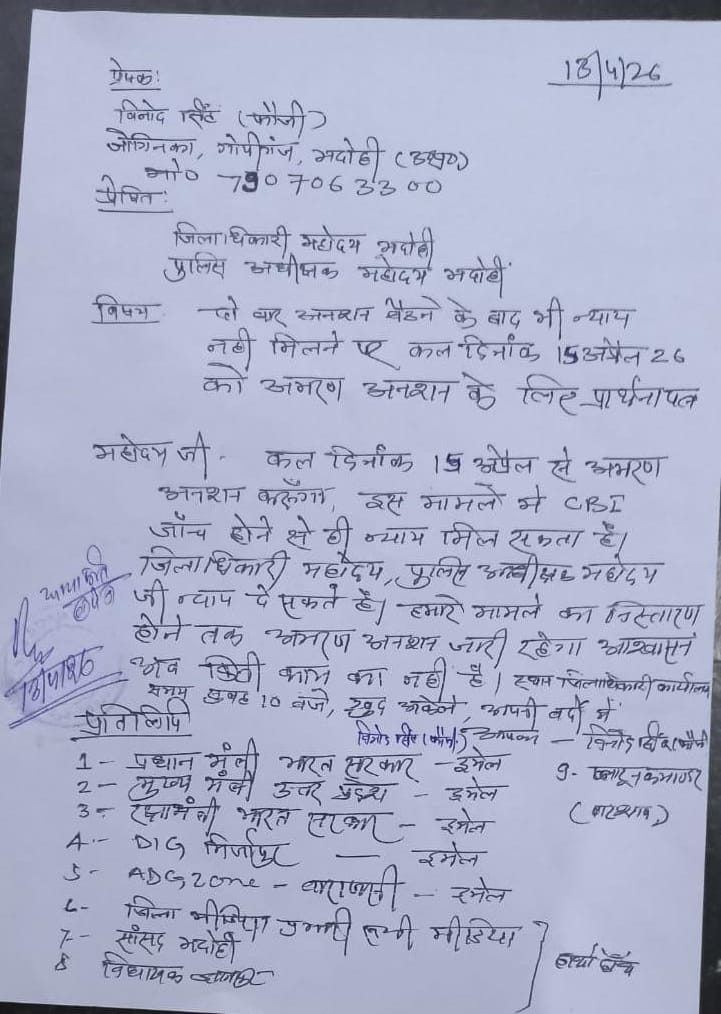 13/4/26
प्रेषक:
विनोद सिंह (फौजी)
जोगिनका, गोपीगंज, भदोही (उ०प्र०)
मो० 7907063300
प्रेषित:
जिलाधिकारी महोदय भदोही
पुलिस अधीक्षक महोदय भदोही
विषय दो बार अनशन बैठने के बाद भी न्याय
नही मिलने पर कल दिनांक 15 अप्रैल 26
को अमरण अनशन के लिए प्रार्थनापत्र
महोदय जी. कल दिनांक 15 अप्रैल से अमरण
अनशन करूँगा, इस मामले में CBI
जाँच होने से ही न्याय मिल सकता है।
जिलाधिकारी महोदय, पुलिस अधीक्षक महोदय
जी न्याय दे सकते है। हमारे मामले का निस्तारण
होने तक अमरण अनशन जारी रहेगा आश्वासन
अब किसी काम का नही है। स्थान जिलाधिकारी कार्यालय
समय सुबह 10 बजे, खुद अकेले, अपनी वर्दी में
विनोद सिंह (फौजी) आपका – विनोद सिंह (फौजी)
प्रतिलिपि
1- प्रधान मंत्री भारत सरकार – इमेल
2- मुख्य मंत्री उत्तर प्रदेश – इमेल
3- रक्षामंत्री भारत सरकार – इमेल
4- DIG मिर्जापुर – इमेल
5- ADG Zone – वाराणसी – इमेल
6- जिला मीडिया प्रभारी सभी मीडिया
7- सांसद भदोही
8 विधायक
9- कमाण्डर